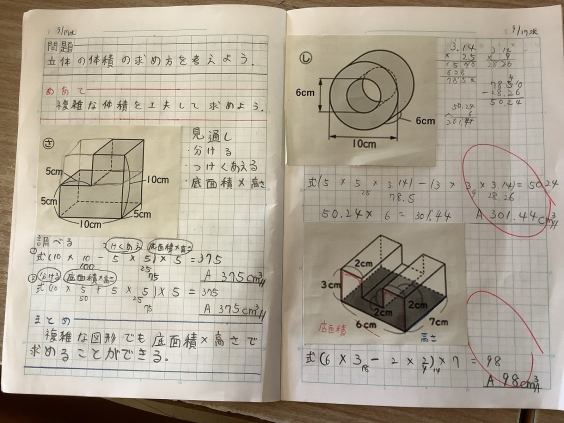 9/17水
問題
立体の体積の求め方を考えよう.
めあて
複雑な体積を工夫して求めよう.
さ
5cm
5cm
10cm
10cm
5cm
見通し
・分ける
・つけくわえる
・底面積×高さ
調べる
① つけくわえる 底面積×高さ
式(10 × 10 - 5 × 5) × 5 = 375
100 25
75
A 375cm³
② 分ける 底面積×高さ
式(10 × 5 + 5 × 5) × 5 = 375
50 25
75
A 375cm³
まとめ
複雑な図形でも底面積×高さで
求めることができる.
9/17水
し
6cm
10cm
6cm
3.14
× 25
1570
628
78.50
3.14
× 9
28.26
78.50
-28.26
50.24
50.24
× 6
301.44
式(5 × 5 × 3.14) - (3 × 3 × 3.14) = 50.24
25 78.5 9 28.26
50.24 × 6 = 301.44
A 301.44cm³
3cm
2cm
2cm
2cm
6cm
7cm
底面積
高さ
式(6 × 3 - 2 × 2) × 7 = 98
18 4 14
A 98cm³